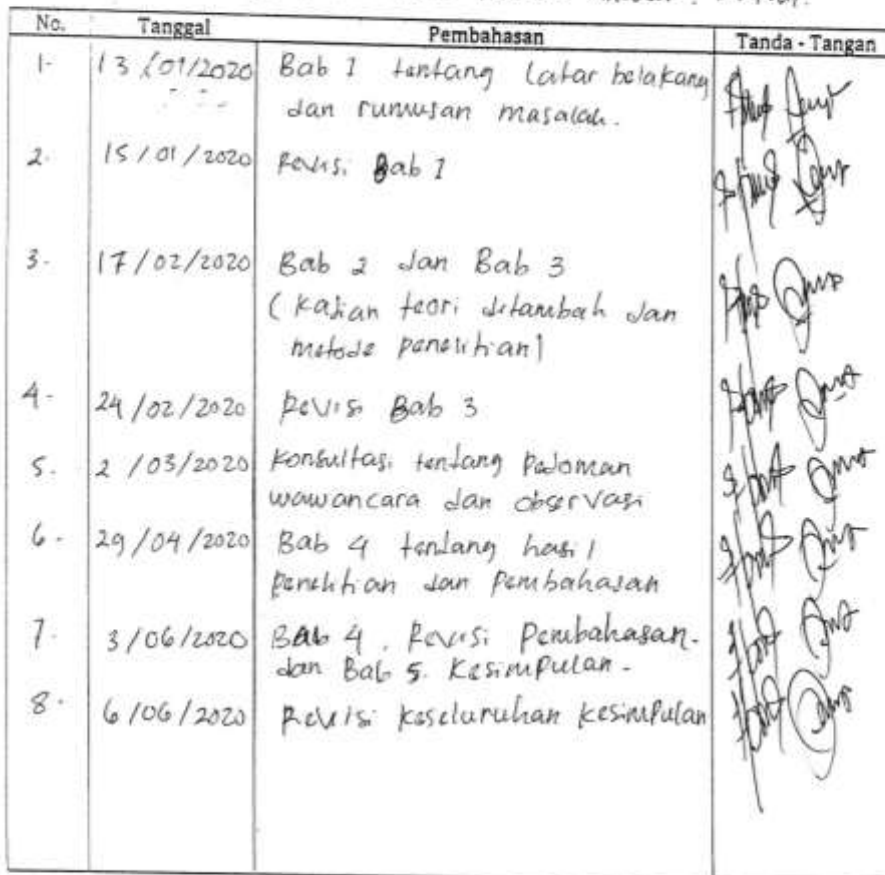 No. Tanggal Pembahasan Tanda - Tangan
1. 13/01/2020 Bab 1 tentang latar belakang
dan rumusan masalah.
2. 15/01/2020 Revisi Bab 1
3. 17/02/2020 Bab 2 dan Bab 3
(Kajian teori ditambah dan
metode penelitian)
4. 24/02/2020 Revisi Bab 3
5. 2/03/2020 Konsultasi tentang Pedoman
wawancara dan observasi
6. 29/04/2020 Bab 4 tentang hasil
penelitian dan pembahasan
7. 3/06/2020 Bab 4. Revisi Pembahasan.
dan Bab 5. Kesimpulan.
8. 6/06/2020 Revisi keseluruhan kesimpulan